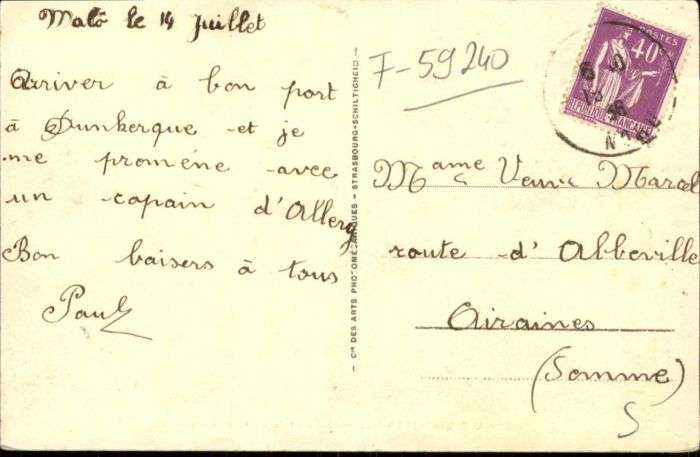 Malo le 14 juillet
Arriver à bon port
à Dunkerque et je
me promène avec
un copain d'Allery
Bon baisers à tous
Paul
Cie DES ARTS PHOTOMÉCANIQUES - STRASBOURG-SCHILTIGHEIM
F-59240
POSTES
40
RÉPUBLIQUE FRANÇAISE
Mame Veuve Marcel
route d'Abbeville
Airaines
(Somme)
S